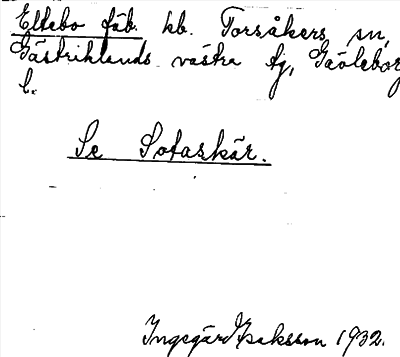 Eltebo fäb. kb. Torsåkers sn,
Gästriklands västra tg, Gävleborg
l.
Se Sofaskär.
Ingegärd Isaksson 1932.